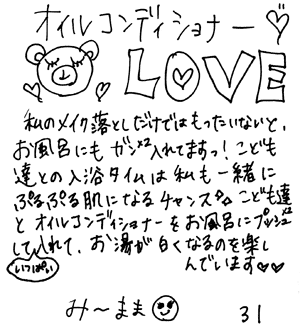 オイルコンディショナー♡
LOVE
私のメイク落としだけではもったいないと、
お風呂にもガンガン入れてますっ!こども
達との入浴タイムは私も一緒に
ぷるぷる肌になるチャンス☆こども達
とオイルコンディショナーをお風呂にプッシュ
して入れて、お湯が白くなるのを楽し
いっぱい
んでいます♡♡
み〜まま
31